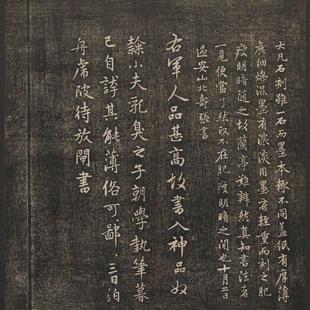 大凡石刻雖一石而墨本輒不同蓋紙有厚薄
麄細燥濕墨有濃淡用墨有輕重而刻之肥
瘦明暗隨之故蘭亭難辨然真知書法者
一見便當了然政不在肥瘦明暗之間也十月二日
過安山北壽張書
右軍人品甚高故書入神品奴
隸小夫乳臭之子朝學執筆暮
已自誇其能薄俗可鄙〻三日泊
舟虎陂待放閘書